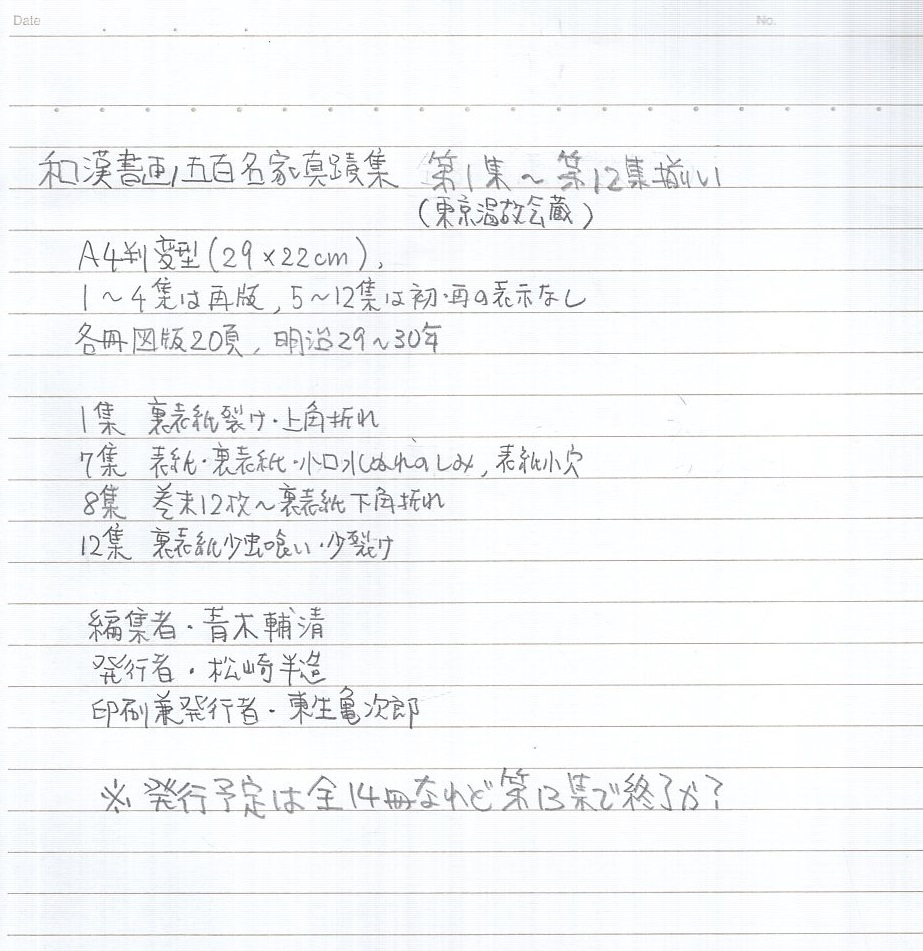 Date
No.
和漢書画五百名家真蹟集 第1集～第12集揃い
(東京温故会蔵)
A4判変型(29×22cm),
1～4集は再版, 5～12集は初・再の表示なし
各冊図版20頁, 明治29～30年
1集 裏表紙裂け・上角折れ
7集 表紙・裏表紙・小口水ぬれのしみ, 表紙小穴
8集 巻末12枚～裏表紙下角折れ
12集 裏表紙少虫喰い・少裂け
編集者・青木輔清
発行者・松崎半造
印刷兼発行者・東生亀次郎
※ 発行予定は全14冊なれど第13集で終了か?